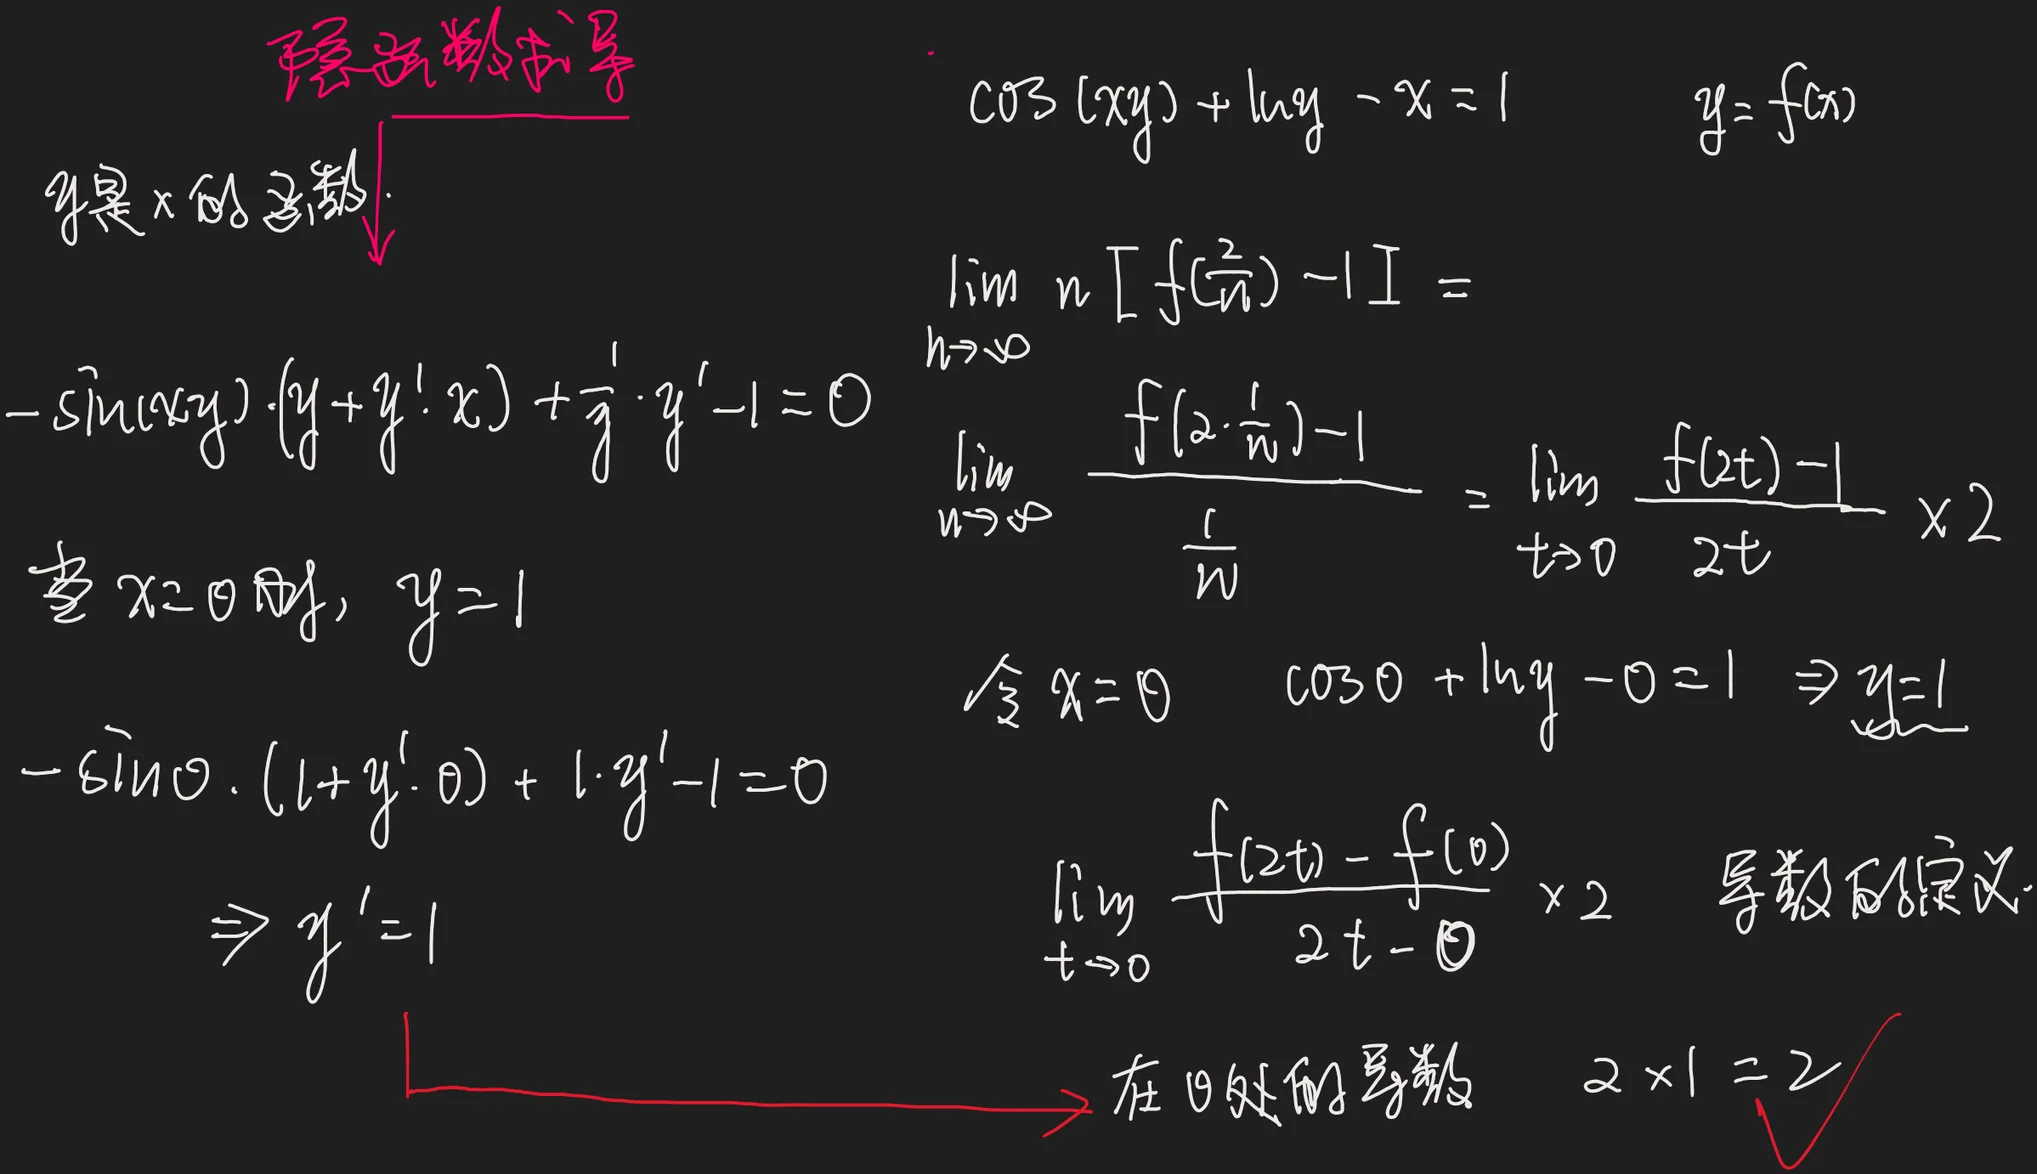 隐函数求导
y是x的函数.
-sin(xy)·(y+y'·x)+\frac{1}{y}·y'-1=0
当x=0时, y=1
-sin0·(1+y'·0)+1·y'-1=0
⇒ y'=1
cos(xy)+lny-x=1 y=f(x)
\lim_{n→∞} n[f(\frac{2}{n})-1]=
\lim_{n→∞} \frac{f(2·\frac{1}{n})-1}{\frac{1}{n}} = \lim_{t→0} \frac{f(2t)-1}{2t} ×2
令x=0 cos0+lny-0=1 ⇒ y=1
\lim_{t→0} \frac{f(2t)-f(0)}{2t-0} ×2 导数的定义.
在0处的导数 2×1=2